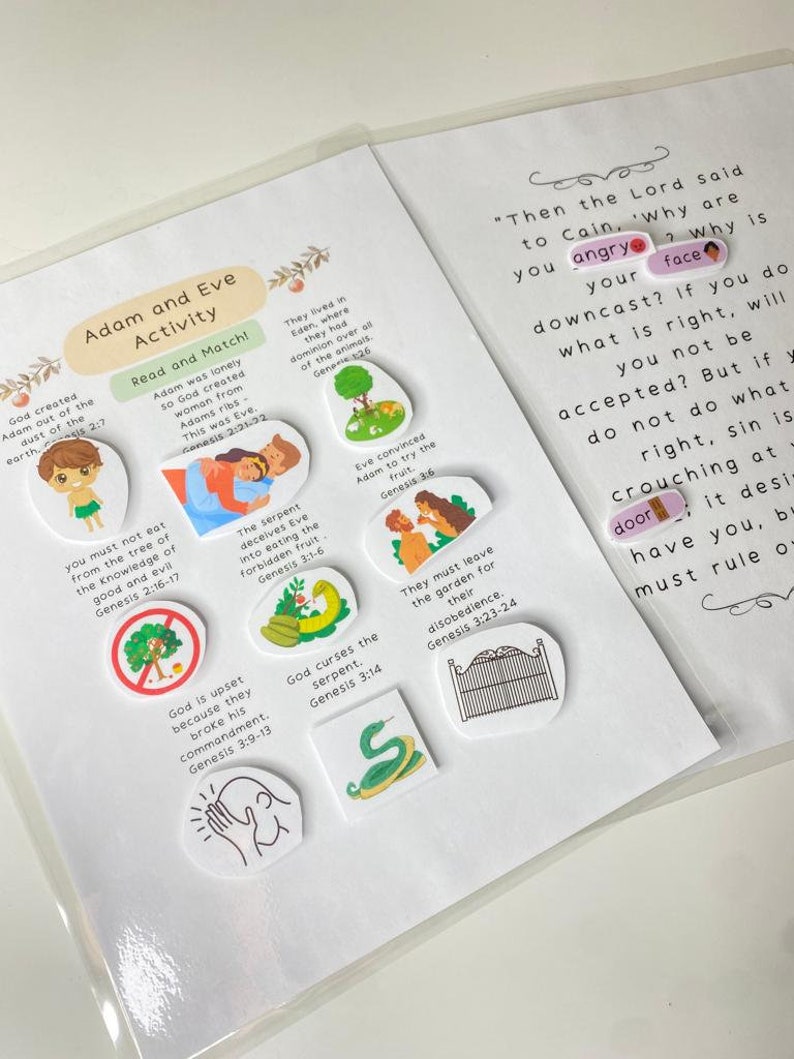 Adam and Eve
Activity
Read and Match!
God created
Adam out of the
dust of the
earth. Genesis 2:7
Adam was lonely
so God created
woman from
Adams ribs -
This was Eve.
Genesis 2:21-22
They lived in
Eden, where
they had
dominion over all
of the animals.
Genesis 1:26
you must not eat
from the tree of
the Knowledge of
good and evil
Genesis 2:16-17
The serpent
deceives Eve
into eating the
forbidden fruit -
Genesis 3:1-6
Eve convinced
Adam to try the
fruit.
Genesis 3:6
God is upset
because they
broke his
commandment.
Genesis 3:9-13
God curses the
serpent.
Genesis 3:14
They must leave
the garden for
their
disobedience.
Genesis 3:23-24
"Then the Lord said
to Cain, 'Why are
you angry ? Why is
your face
downcast? If you do
what is right, will
you not be
accepted? But if y
do not do what
right, sin is
crouching at y
door it desir
have you, bu
must rule o